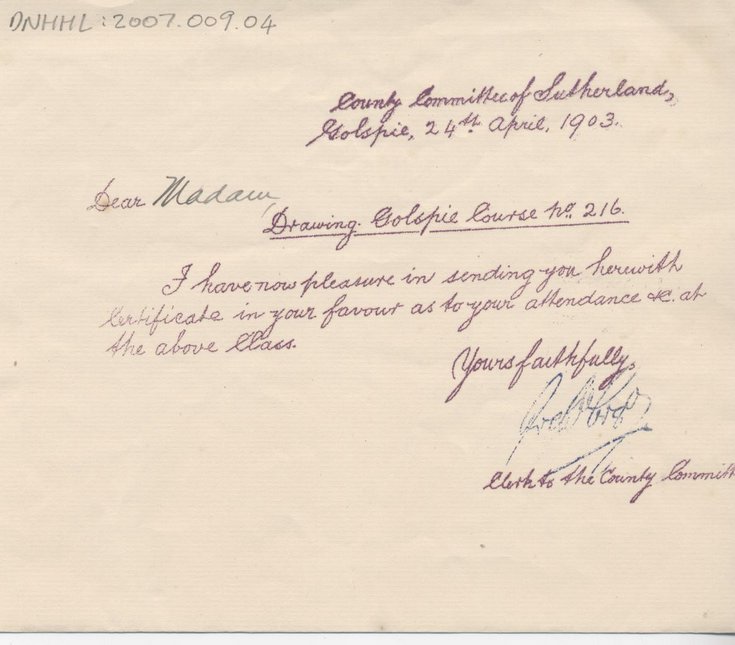 DNHHL:2007.009.04
County Committee of Sutherland,
Golspie, 24th April, 1903.
Dear Madam,
Drawing. Golspie Course No. 216.
I have now pleasure in sending you herewith
Certificate in your favour as to your attendance &c. at
the above Class.
Yours faithfully,
Clerk to the County Committ